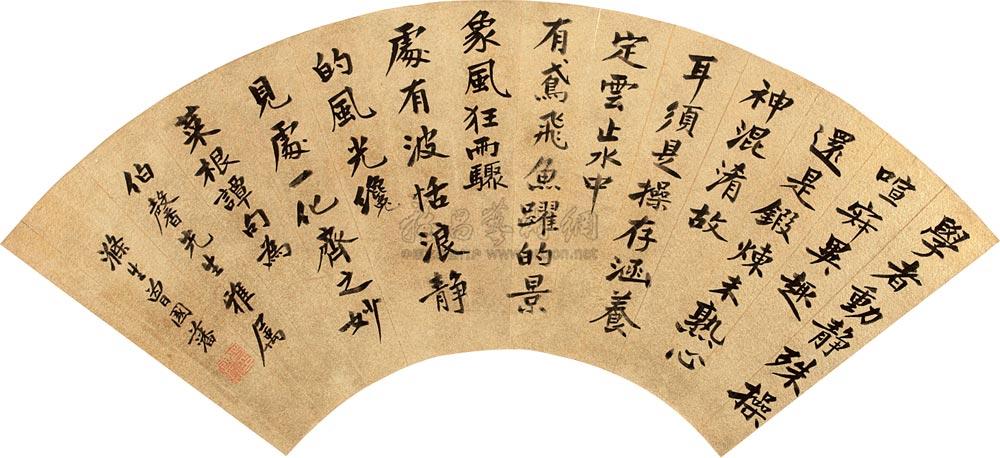 學者動靜殊操
喧寂異趣
還是鍛煉未熟心
神混淆故
耳須是操存涵養
定雲止水中
有鳶飛魚躍的景
象風狂雨驟
處有波恬浪静
的風光纔
見處一化齊之妙
菜根譚句為
伯馨先生雅属
滌生曾國藩